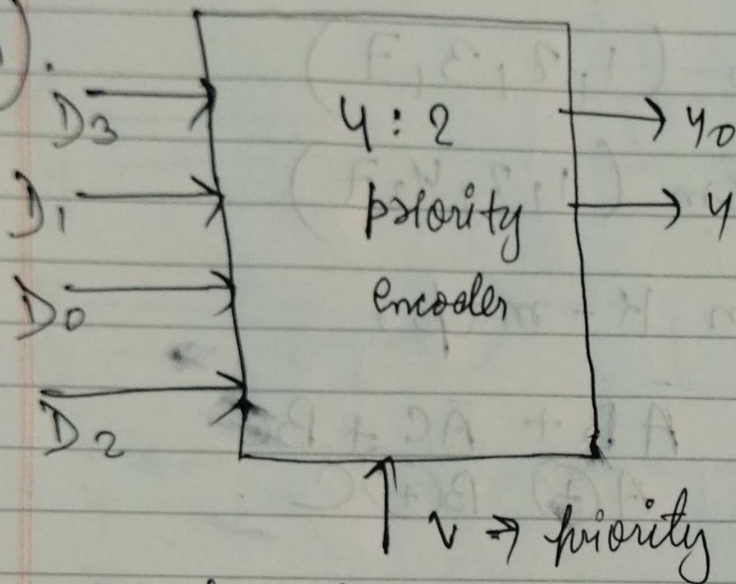 D3
D1
D0
D2
4 : 2
priority
encoder
y0
y
v → priority